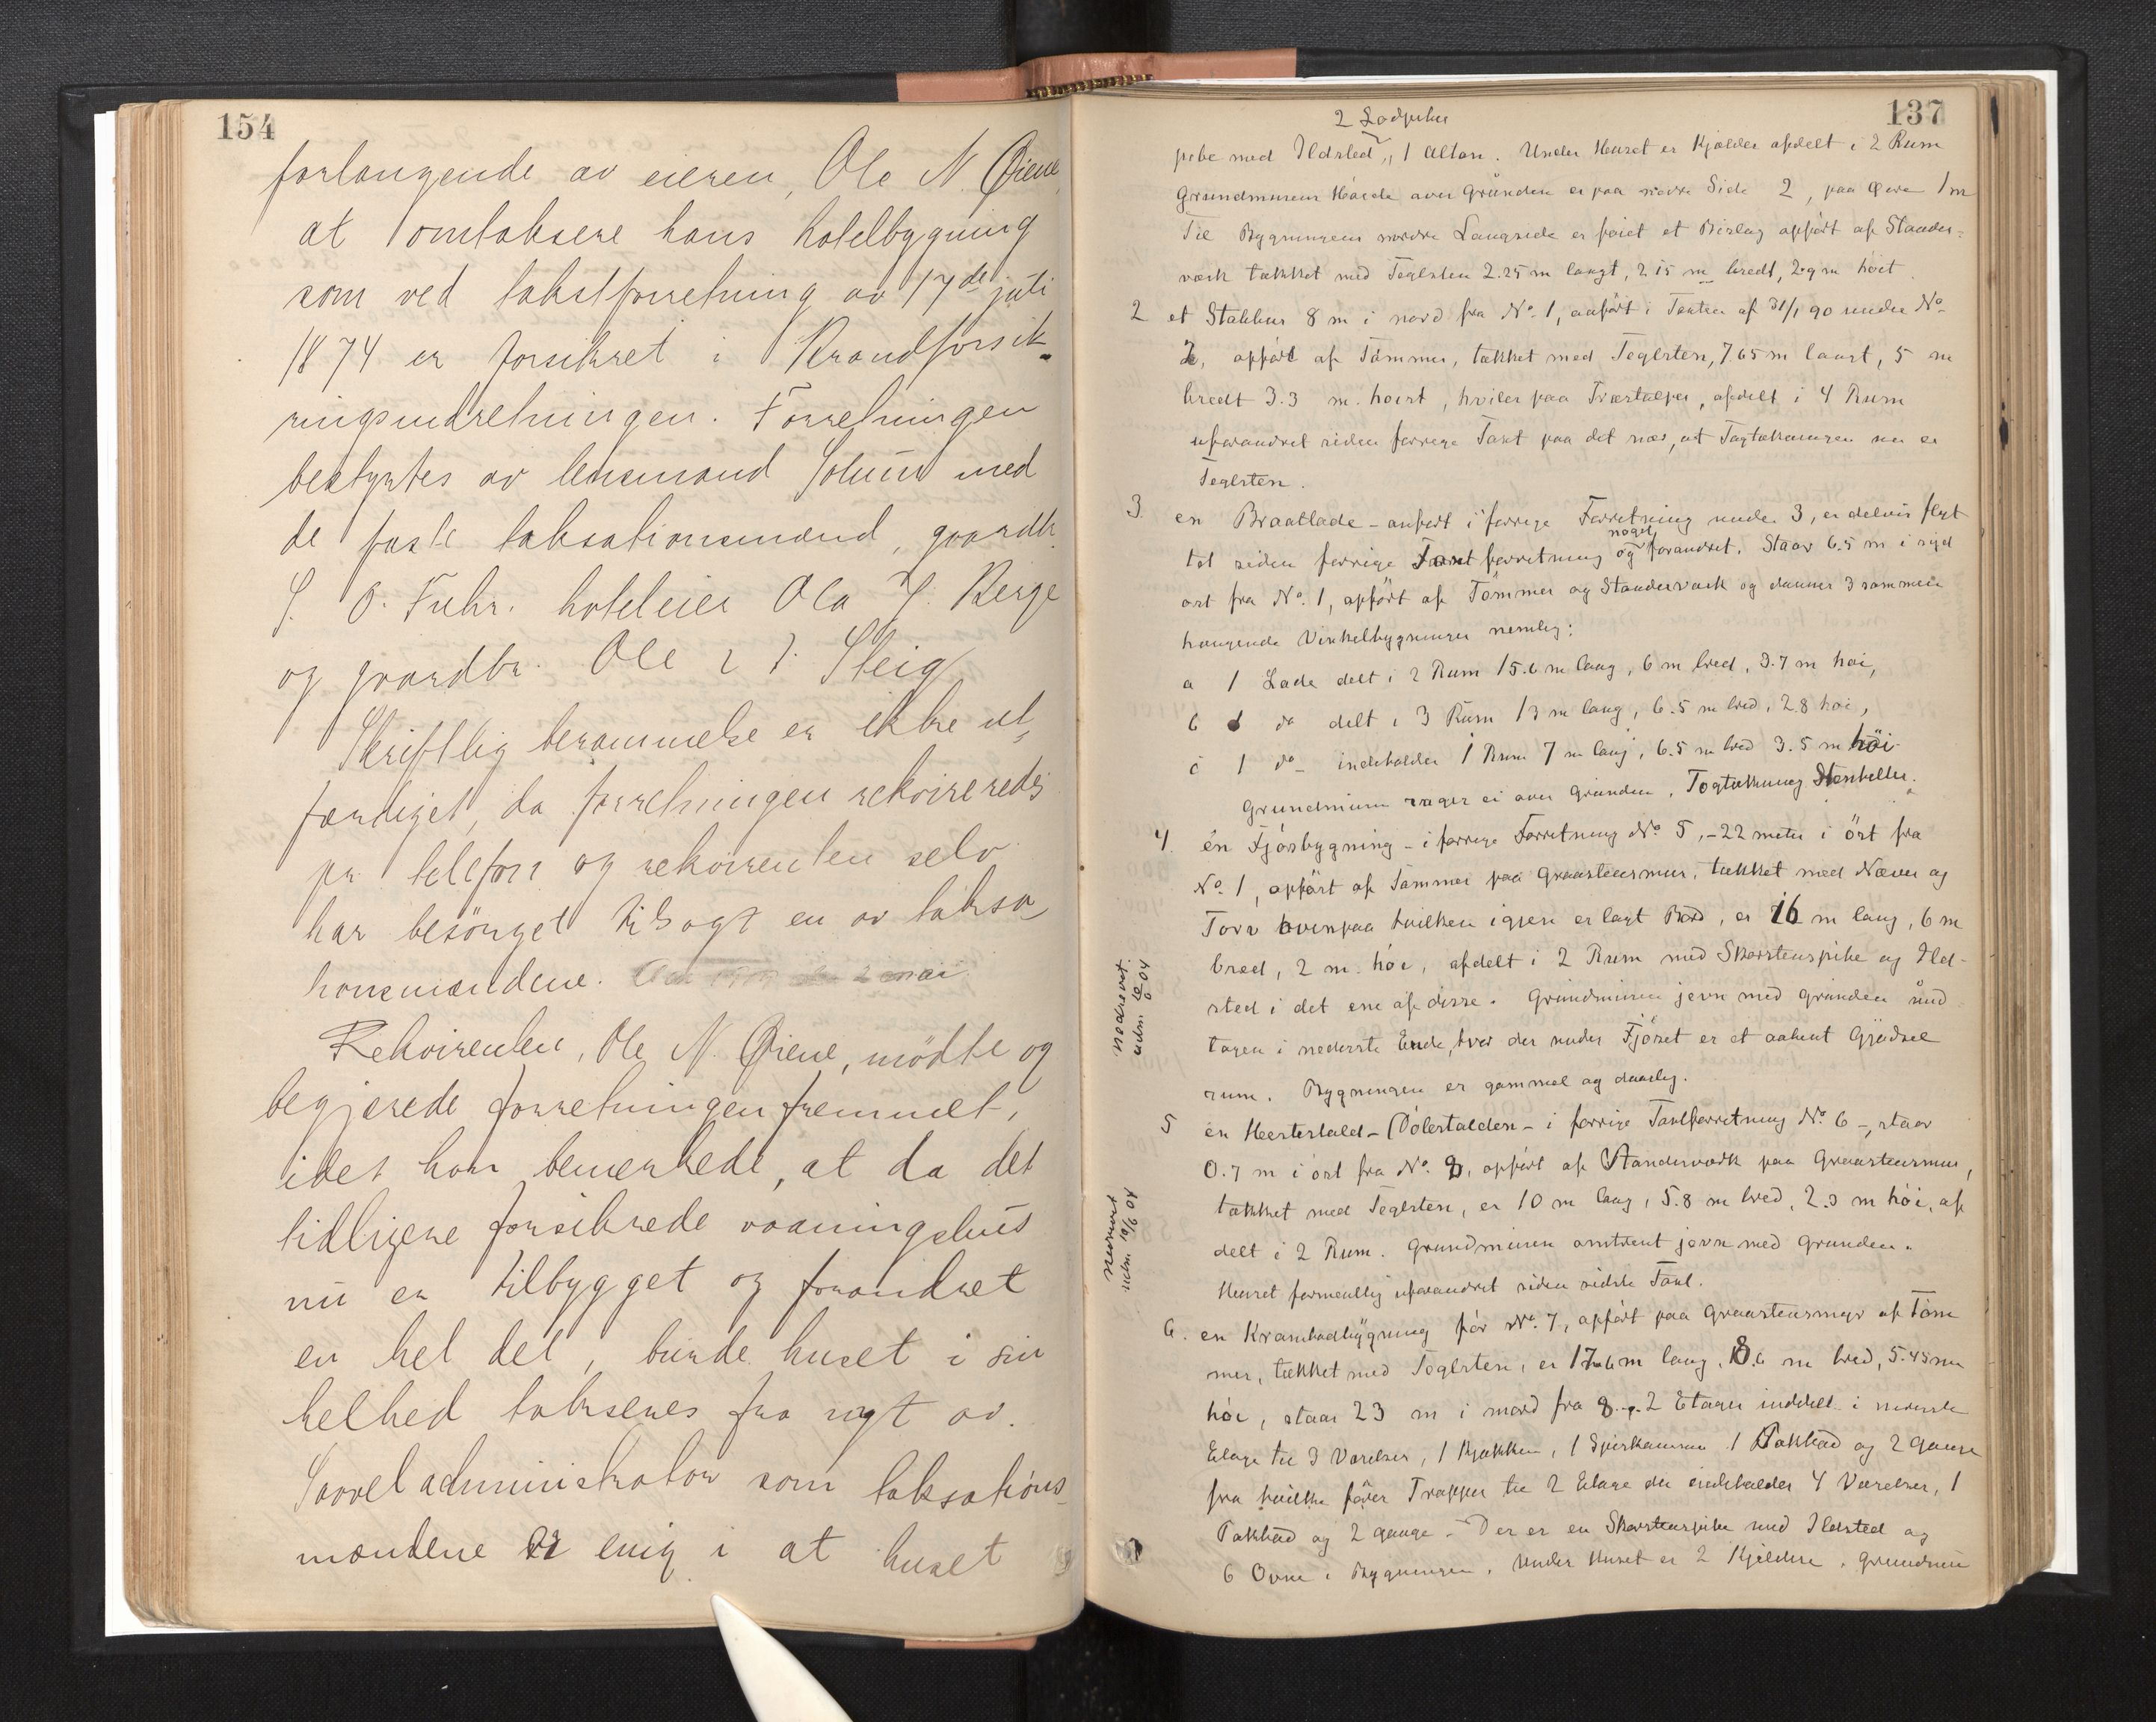 154
forlangende av eieren, Ole N. Øiene,
at omtaksere hans hotelbygning
som ved takstforretning av 17de juli
1874 er forsikret i Brandforsik-
ringsindretningen. Forretningen
bestyrtes av lensmand Solum med
de faste taksationsmænd, gaardbr.
S. O. Fuhr. hoteleier Ola J. Berge
og gaardbr. Ole I. Steig
Skriftlig berammelse er ikke ut-
færdiget, da forretningen rekvireredes
pr telefon og rekvirenten selv
har besörget tilsagt en av taksa-
honsmændene. 2 mai
Rekvirenten, Ole N. Øiene, mødte og
begjærede forretningen fremmet,
idet han bemerkede, at da det
tidligere forsikrede vaaningshus
nu er tilbygget og forandret
en hel del, burde huset i sin
helhed takseres fra nyt av.
Saavel administrator som taksations-
mændene er enig i at huset
137
2 Lodpiber
pibe med Ildsted, 1 Altan. Under Huset er Kjelder afdelt i 2 Rum
Grundmurens Høide over Grunden er paa nedre Side 2, paa øvre 1 m
Til Bygningens nordre Langside er føiet et Bislag opført af Stander-
værk tækket med Teglsten 2.25 m langt, 2.15 m bredt, 2.9 m höit
2 et Stabbur 8 m i nord fra No. 1, anført i Taxten af 31/1 90 under No
2, opført af Tömmer, tækket med Teglsten, 7.65 m langt, 5 m
bredt 3.3 m. høist, hviler paa Træstolper, afdelt i 4 Rum
uforandret siden forrige Taxt paa det nær, at Tagtækningen nu er
Teglsten.
3. en Braatlade - anført i forrige Forretning under 3, er delvis flyt
tet siden forrige Taxtforretning og noget forandret. Staar 6.5 m i syd
ost fra No. 1, opført af Tömmer og Standerværk og danner 3 sammen
hængende Vinkelbygninger nemlig:
a 1 Lade delt i 2 Rum 15.6 m lang, 6 m bred, 3.7 m høi,
b 1 do delt i 3 Rum 13 m lang, 6.5 m bred, 2.8 høi,
c 1 do - indeholder 1 Rum 7 m lang, 6.5 m bred 3.5 m höi
Grundmuren rager ei over Grunden. Tagtækning Stenheller.
4. en Fjøsbygning - i forrige Forretning No. 5, - 22 meter i öst fra
No. 1, opført af Tømmer paa Graastensmur, tækket med Næver og
Torv ovenpaa hvilken igjen er lagt Bord, er 16 m lang, 6 m
bred, 2 m. høi, afdelt i 2 Rum med Skorstenspibe og Ild-
sted i det ene af disse. Grundmuren jevn med Grunden und
tagen i nederste Ende, hvor der under Fjøset er et aabent Gjødsel
rum. Bygningen er gammel og daarlig.
nedrevet.
5 en Hestestald - (Volestalden - i forrige Taxtforretning No. 6 -, staar
0.7 m i øst fra No. 8, opført af Standerværk paa Graastensmur,
tækket med Teglsten, er 10 m lang, 5.8 m bred, 2.3 m høi, af
delt i 2 Rum. Grundmuren omtrent jevn med Grunden.
Huset formentlig uforandret siden sidste Taxt.
6. en Krambodbygning før No. 7, opført paa Graastensmur af Töm
mer, tækket med Teglsten, er 17.6 m lang, 8.6 m bred, 5.45 m
høi, staar 23 m i nord fra 8. - 2 Etager inddelt i nederste
Etage til 3 Værelser, 1 Kjøkken, 1 Spiskammer 1 Pakbod og 2 Gange
fra hvilke fører Trapper til 2 Etage der indeholder 4 Værelser, 1
Pakbod og 2 Gange - Der er en Skorstenspibe med Ildsted og
6 Ovne i Bygningen. Under Huset er 2 Kjeldere. Grundmu